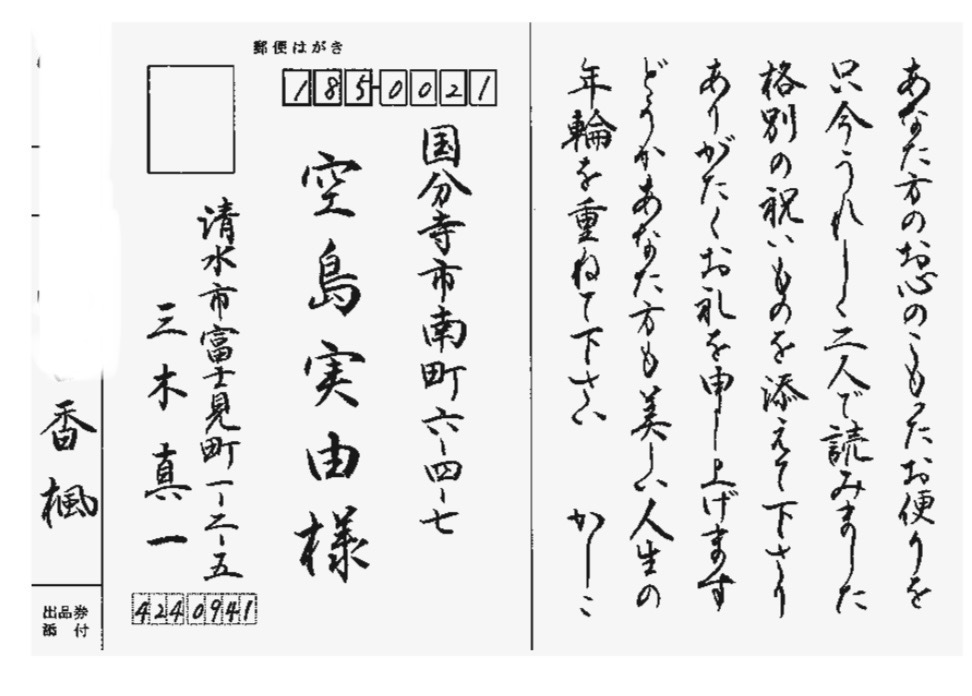 あなた方のお心のこもったお便りを
只今うれしく二人で読みました
格別の祝いものを添えて下さり
ありがたくお礼を申し上げます
どうかあなた方も美しい人生の
年輪を重ねて下さい　かしこ
郵便はがき
185-0021
国分寺市南町六-四-七
空島実由様
清水市富士見町一-二-五
三木真一
4240941
香楓
出品券
添付